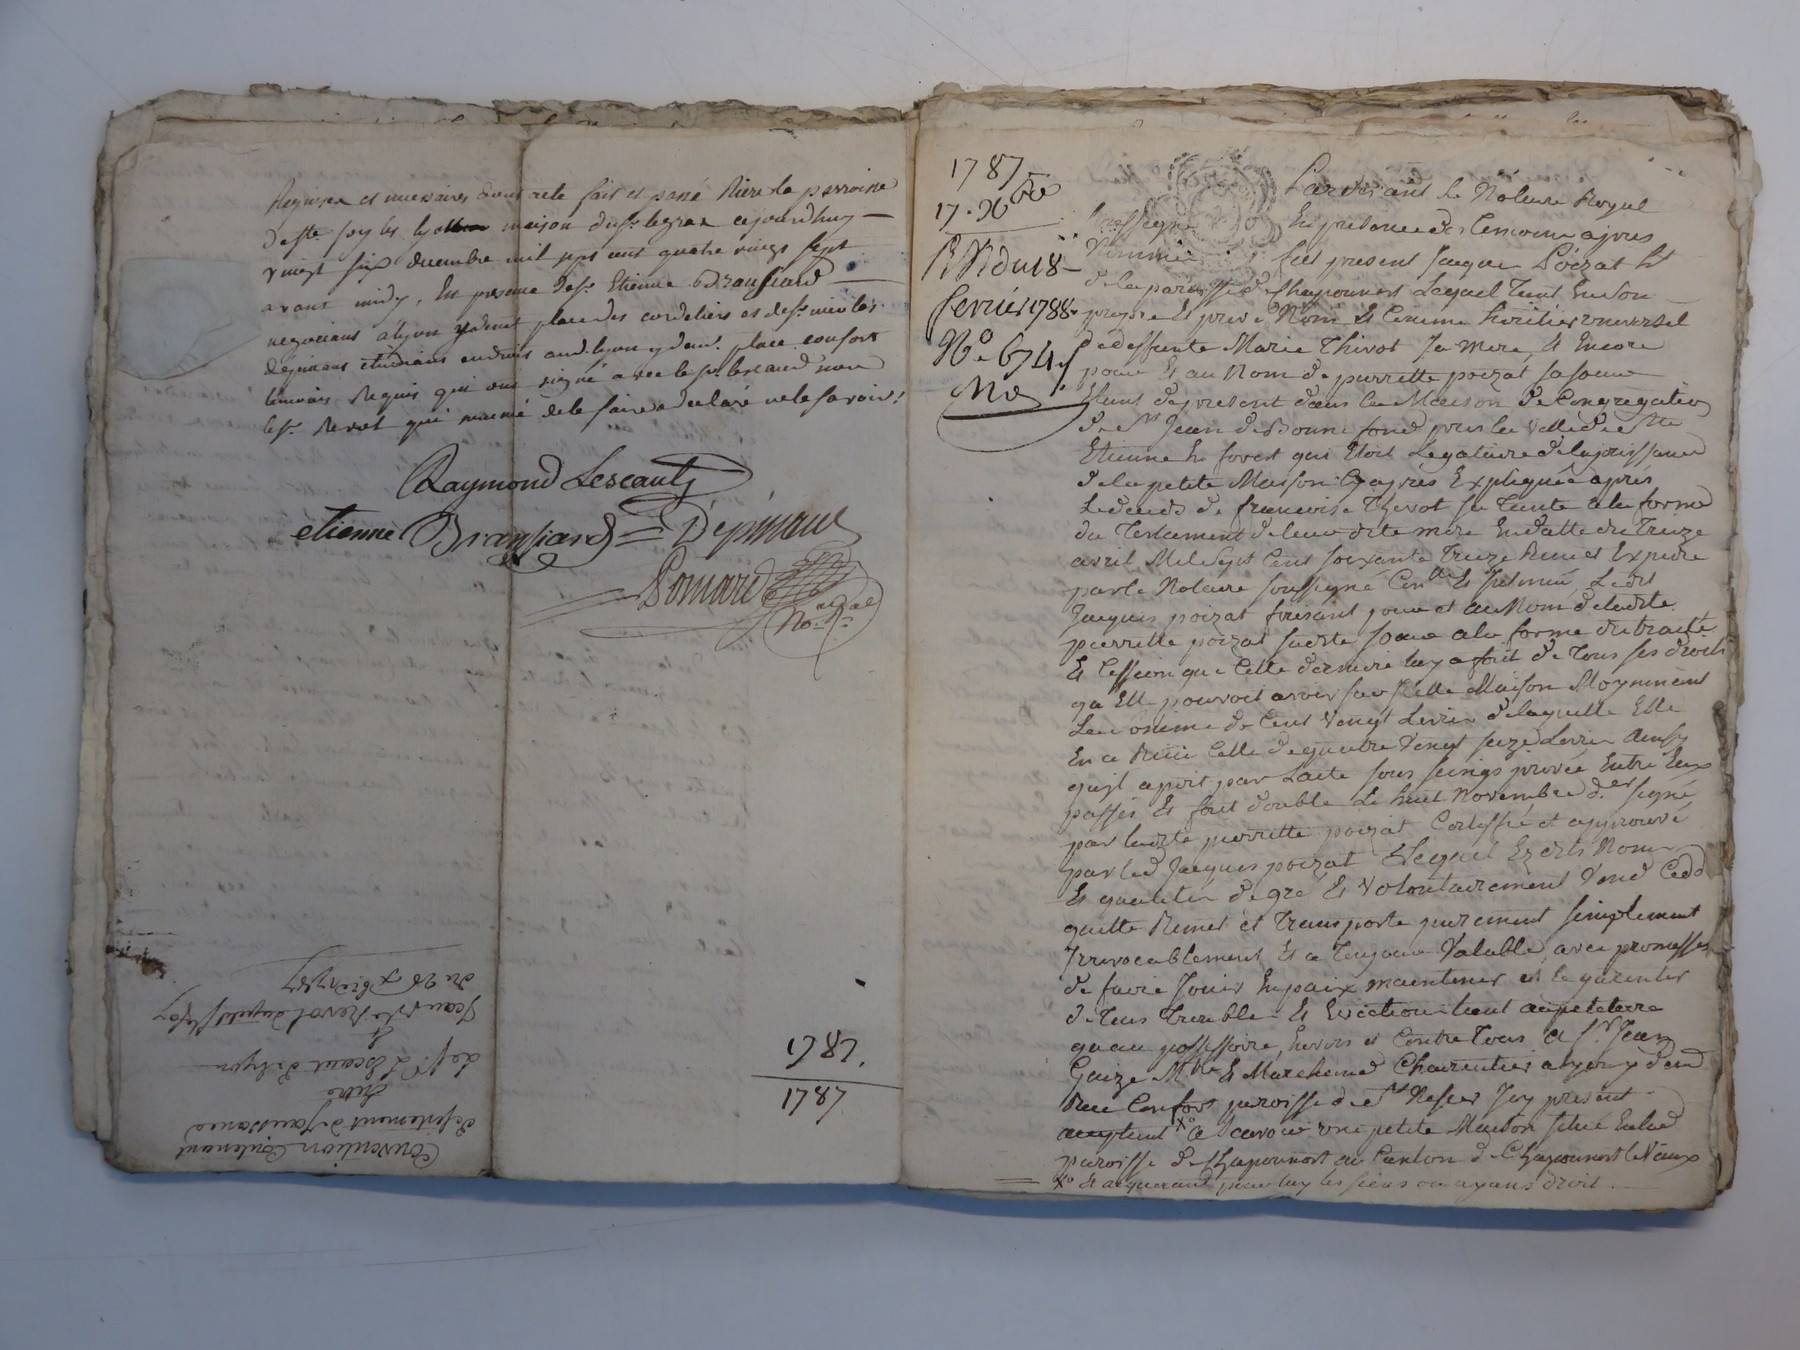 Requises et necessaires dont acte fait et passé Riere la parroisse
de ste foy les lyon maison du sr. legras cejourdhuy
vingt six decembre mil sept cent quatre vingt sept
avant midy, En presence de sr. Etienne Bransiard
negociant a lyon y demt. place des cordeliers et de sr. nicolas
Depinaus etudiant en droit aud. lyon y dem. place confort
temoins Requis qui ont signé avec le sr. lescaud non
le sr. Revot qui enquis de le faire a declaré ne le savoir.
Raymond Lescaut
etienne Bransiard = Depinaus
Poniard
No. Ral
1787.
1787
Convention Contenant
Desistement de Jouissance
Entre
de sr. L'Escaut de Lyon
Et
Jean Revot
du 26 Xbre 1787
1787
17. Xbre
R Ndu 18
fevrier 1788.
No. 6745
Pardevant le Notaire Royal
soussigné En presence des temoins apres
Nommés fut present Jacque Poizat
de la paroisse de Chaponnost Lequel Tant En son
propre Et privé Nom Et Comme heritier universel
de deffunte Marie Thivot sa mere, Et Encore
pour Et au Nom de pierrette poizat sa soeur
Etant de present dans la Maison de Congregation
de St Jean de Bonnefond pres la Ville de St
Etienne En forest qui Etoit Legataire de la jouissance
de la petite Maison Cy apres Expliquée apres
Le deces de francoise Thivot sa Tante a la forme
du Testament de leur dite mere En datte du Treize
avril Mil Sept Cent soixante Treize Reçu et Expedié
par le Notaire soussigné Con.lle Et Insinué, Ledit
Jacques poizat faisant pour et au Nom de ladite
pierrette poizat sadite soeur a la forme du traité
Et Cession que Cette derniere luy a fait de Tous ses droits
qu Elle pouvoit avoir sur Cette Maison Moyennant
La somme de Cent Vingt Livres de laquelle Elle
En a Reçu Celle de quatre Vingt seize Livres Ainsy
qu'il apert par Lacte sous seings privés Entre Eux
passés Et fait double Le huit Novembre d.er signé
par ladite pierrette poizat Certiffié et approuvé
par led Jacques poizat Lequel Ezdits Noms
Et qualités de gré Et Volontairement Vend Cede
quitte Remet et Transporte purement simplement
Irrevocablement Et a Toujours Valable, avec promesses
de faire Jouir En paix maintenir et le garentir
de Tous Trouble Et Eviction tant au petitoire
qu au possessoire, Envers et Contre Tous A Sr. Jean
Goize Mtre Et Marchand Charcutier a lyon y demt
Rue Confort paroisse de St Nizier Icy present
acceptant X° a scavoir une petite Maison situé En lad
paroisse de Chaponnost au Canton de Chaponnost le Vieux
X° Et acquerant pour luy les siens ou ayans droit.